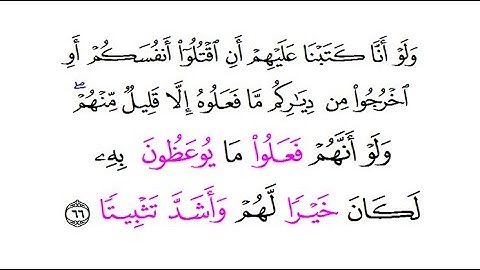 وَلَوْ أَنَّا كَتَبْنَا عَلَيْهِمْ أَنِ ٱقْتُلُوٓا۟ أَنفُسَكُمْ أَوِ
ٱخْرُجُوا۟ مِن دِيَـٰرِكُم مَّا فَعَلُوهُ إِلَّا قَلِيلٌ مِّنْهُمْ ۖ
وَلَوْ أَنَّهُمْ فَعَلُوا۟ مَا يُوعَظُونَ بِهِۦ
لَكَانَ خَيْرًا لَّهُمْ وَأَشَدَّ تَثْبِيتًا ۝٦٦